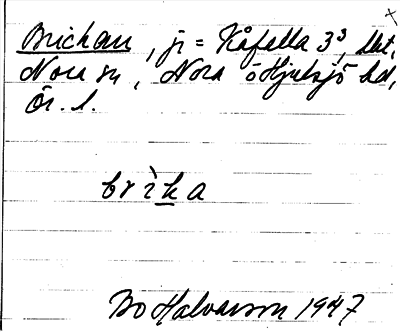 Brickan, j = Kåfalla 3³,
Nora sn, Nora o Hjulsjö hd,
Ör. l.
brìka
Bo Halvarson 1947